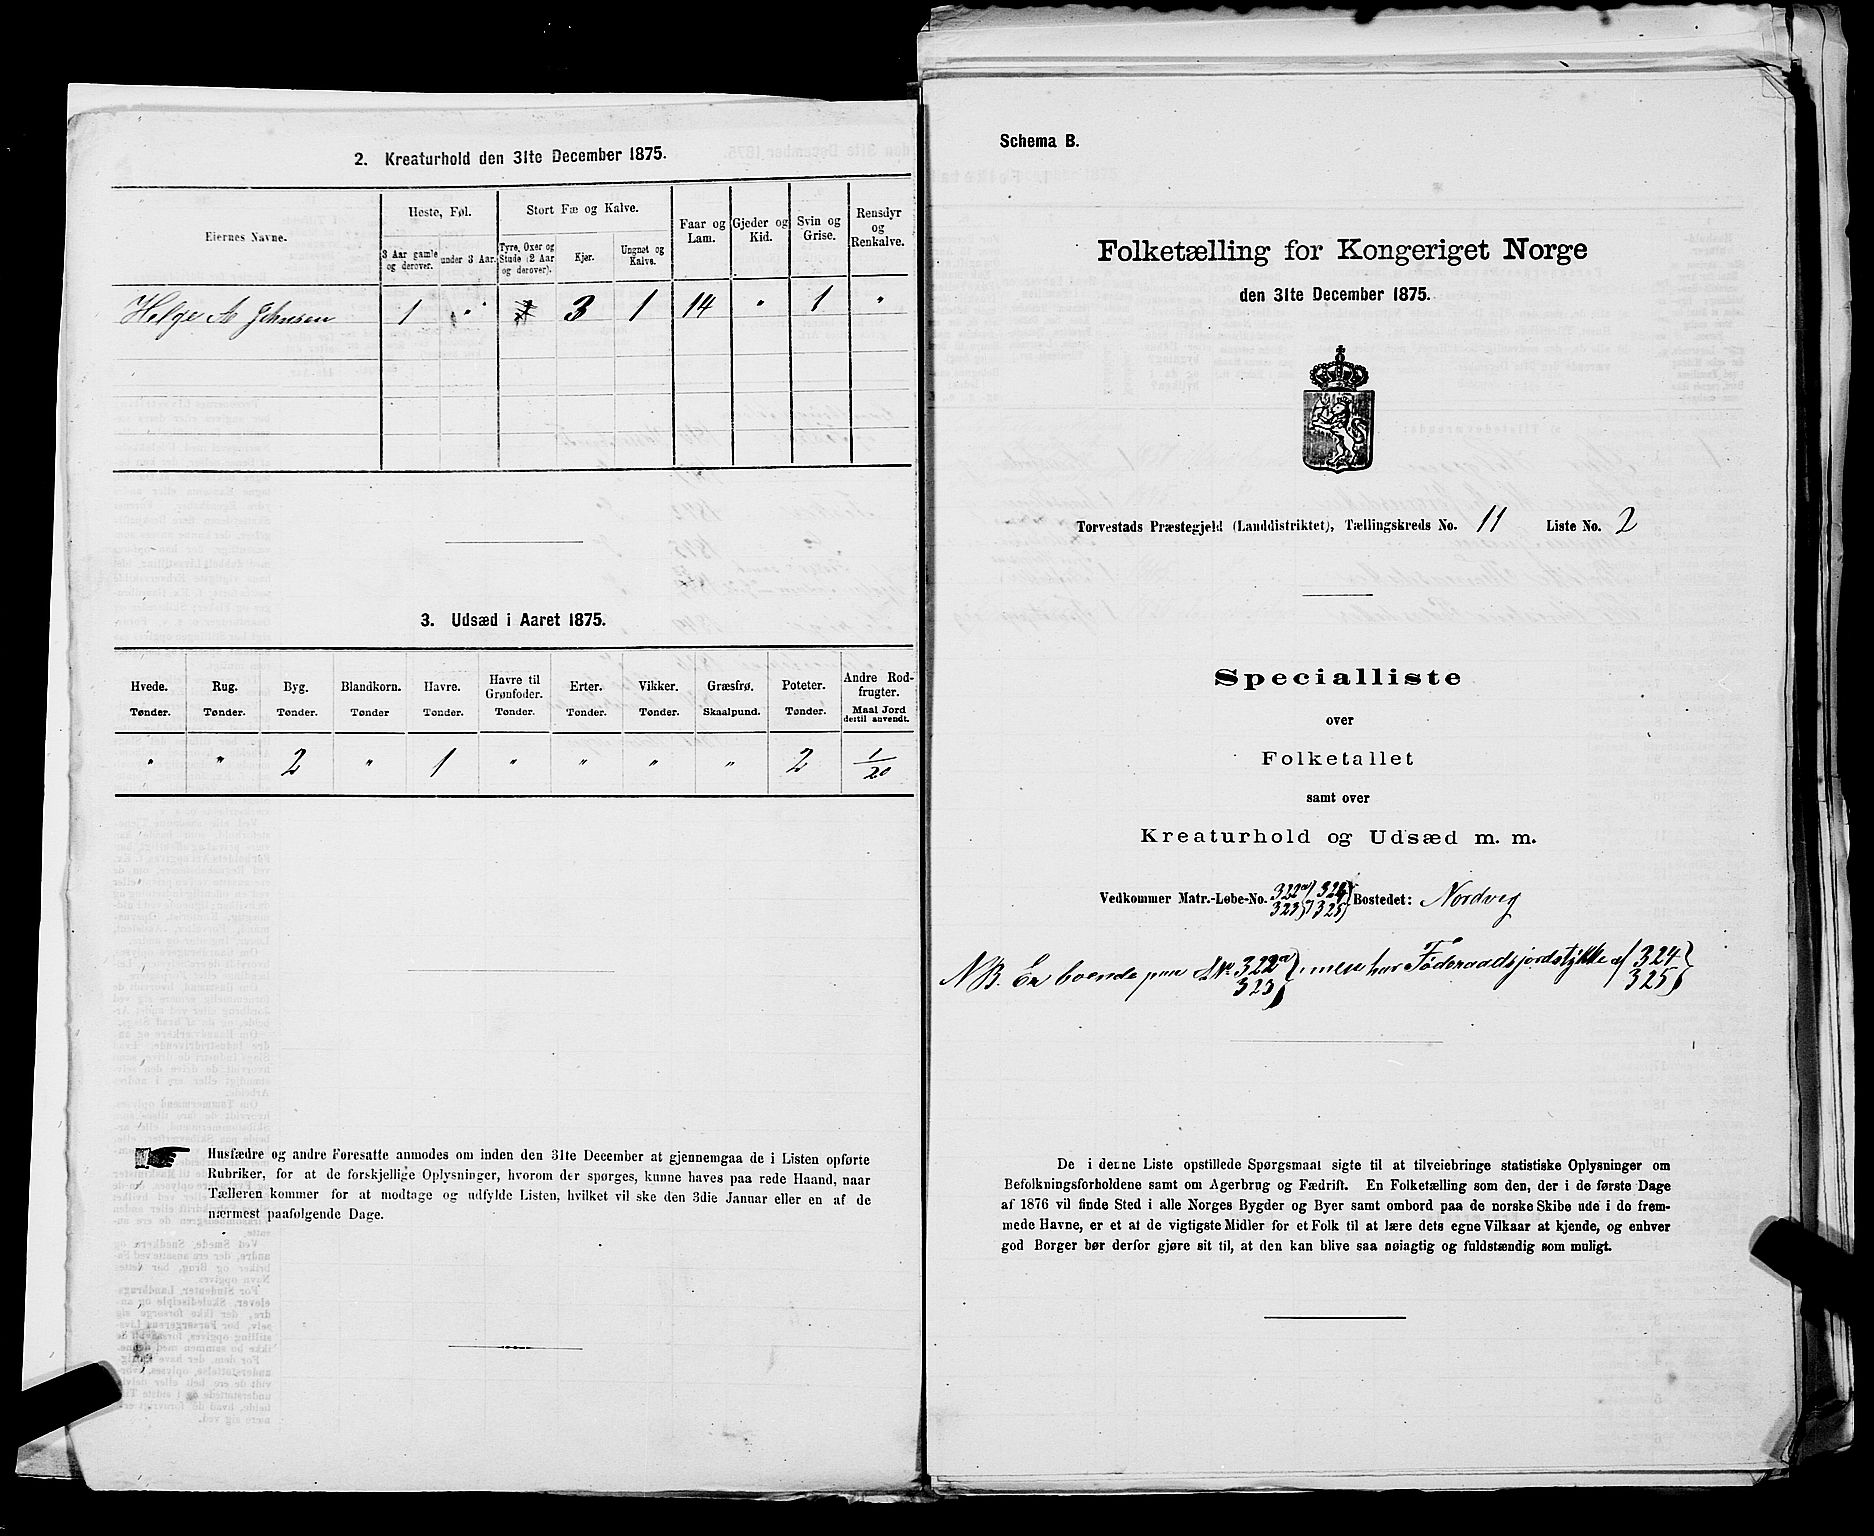 2. Kreaturhold den 31te December 1875.
Eiernes Navne.
Heste, Føl.
3 Aar gamle og derover.
under 3 Aar.
Stort Fæ og Kalve.
Tyre, Oxer og Stude (2 Aar og derover).
Kjør.
Ungnøt og Kalve.
Faar og Lam.
Gjeder og Kid.
Svin og Grise.
Rensdyr og Renkalve.
Helge A Johnsen 1 " 3 1 14 " 1 "
3. Udsæd i Aaret 1875.
Hvede. Rug. Byg. Blandkorn. Havre. Havre til Grønfoder. Erter. Vikker. Græsfrø. Poteter. Andre Rodfrugter.
Tønder. Tønder. Tønder. Tønder Tønder. Tønder. Tønder. Tønder. Skaalpund. Tønder. Maal Jord dertil anvendt.
" " 2 " 1 " " " " 2 1/20
Husfædre og andre Foresatte anmodes om inden den 31te December at gjennemgaa de i Listen opførte
Rubriker, for at de forskjellige Oplysninger, hvorom der spørges, kunne haves paa rede Haand, naar
Tælleren kommer for at modtage og udfylde Listen, hvilket vil ske den 3die Januar eller en af de
nærmest paafølgende Dage.
Schema B.
Folketælling for Kongeriget Norge
den 31te December 1875.
Torvestads Præstegjeld (Landdistriktet), Tællingskreds No. 11 Liste No. 2
Specialliste
over
Folketallet
samt over
Kreaturhold og Udsæd m. m.
Vedkommer Matr.-Løbe-No. 322a 323 324 325 Bostedet: Nordveg
NB. Er boende paa LNo. 322a 323, men har Føderaadsjordstykke af 324 325
De i denne Liste opstillede Spørgsmaal sigte til at tilveiebringe statistiske Oplysninger om
Befolkningsforholdene samt om Agerbrug og Fædrift. En Folketælling som den, der i de første Dage
af 1876 vil finde Sted i alle Norges Bygder og Byer samt ombord paa de norske Skibe ude i de frem-
mede Havne, er et af de vigtigste Midler for et Folk til at lære dets egne Vilkaar at kjende, og enhver
god Borger bør derfor gjøre sit til, at den kan blive saa nøiagtig og fuldstændig som muligt.